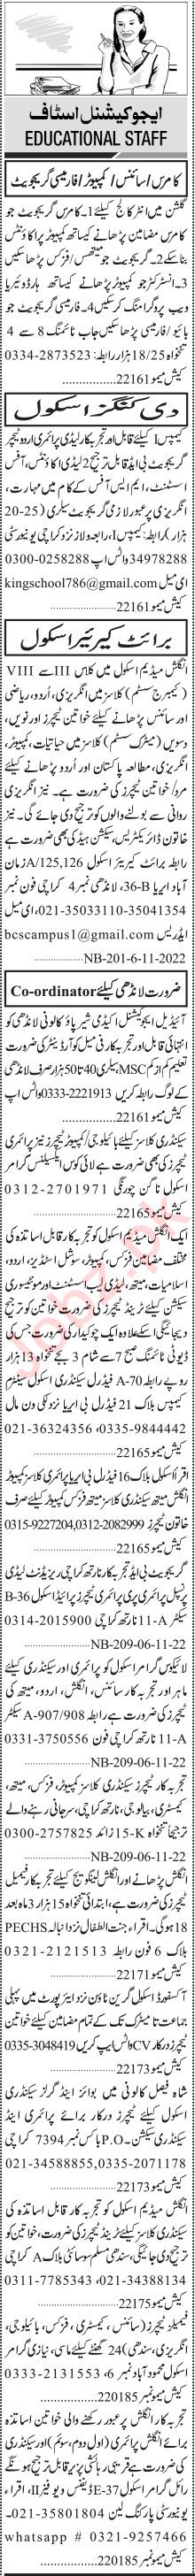 ایجوکیشنل اسٹاف
EDUCATIONAL STAFF
کامرس/سائنس/کمپیوٹر/فارمیسی گریجویٹ
گلشن میں انٹر کالج کیلئے 1۔کامرس گریجویٹ جو
کامرس مضامین پڑھانے کیساتھ کمپیوٹر پر اکاؤنٹس
بناسکے 2۔گریجویٹ جو میتھس/فزکس پڑھاسکیں
3۔انسٹرکٹر جو کمپیوٹر پڑھانے کیساتھ ہارڈویئر یا
ویب پروگرامنگ کرسکیں 4۔فارمیسی گریجویٹ جو
بائیو/فارمیسی پڑھاسکیں جاب ٹائمنگ 8 سے 4
تنخواہ 18/25 ہزار رابطہ: 0334-2873523
کیش میمو 22161
دی کنگز اسکول
کیمپس I کیلئے قابل اور تجربہ کار لیڈی پرائمری اور ٹیچر
گریجویٹ بی ایڈ قابل ترجیح 2 لیڈی اکاؤنٹس، آفس
اسسٹنٹ، ایم ایس آفس کے کام میں مہارت،
انگریزی پر عبور لازمی گریجویٹ سیلری (25-20
ہزار) رابطہ: کیمپس I، رابعہ ولاز نزد کراچی یونیورسٹی
34978288 واٹس اپ 0300-0258288
ای میل kingschool786@gmail.com
کیش میمو 22161
برائٹ کیریئر اسکول
انگلش میڈیم اسکول میں کلاس III سے VIII
(کیمبرج سسٹم) کلاسز میں انگریزی، اردو، ریاضی
اور سائنس پڑھانے کیلئے خواتین ٹیچرز اور نویں،
دسویں (میٹرک سسٹم) کلاسز میں حیاتیات، کمپیوٹر،
انگریزی، مطالعہ پاکستان اور اُردو پڑھانے کیلئے
مرد/خواتین ٹیچرز کی ضرورت ہے۔ نیز انگریزی
روانی سے بولنے والوں کو ترجیح دی جائے گی۔ نیز
خاتون ڈائریکٹریس، سیکشن ہیڈ کی بھی ضرورت ہے
رابطہ برائٹ کیریئر اسکول A/125,126 زمان
آباد ایریا 36-B، لانڈھی نمبر 4 کراچی فون نمبر
021-35033110-35041354، ای میل
ایڈریس bcscampus1@gmail.com
NB-201-6-11-2022
ضرورت لانڈھی کیلئے Co-ordinator
آئیڈیل ایجوکیشنل اکیڈمی شیرپاؤ کالونی لانڈھی کو
انتہائی قابل اور تجربہ کار فی میل کوآرڈینیٹر کی ضرورت
تعلیم کم از کم MSC، سیلری 40 تا 50 ہزار صرف لانڈھی
کے لوگ رابطہ کریں 0333-2221913 واٹس اپ
کیش میمو 22161
سیکنڈری کلاسز کیلئے بائیولوجی/کمپیوٹر ٹیچرز نیز پرائمری
ٹیچرز کی بھی ضرورت ہے لائی کون ایکسیلنس گرامر
اسکول ناگن چورنگی 0312-2701971
کیش میمو 22165
ایک انگلش میڈیم اسکول کو تجربہ کار قابل اساتذہ کی
مختلف مضامین فزکس، کمپیوٹر، سوشل اسٹڈیز، اردو،
اسلامیات، میتھ، لیڈی لیب اسسٹنٹ اور مونٹیسوری
سیکشن کیلئے ٹرینڈ ٹیچرز کی ضرورت خواتین کو ترجیح
دیجائیگی اسکے علاوہ ایک چوکیدار کی ضرورت جس کی
ڈیوٹی ٹائمنگ صبح 7 سے شام 3 بجے تنخواہ 13 ہزار
روپے رابطہ A-70 فیڈرل سیکنڈری اسکول سینٹرم
کیمپس بلاک 21 فیڈرل بی ایریا نزد لکی ون مال
021-36324356 ،0335-9844442
کیش میمو 22165
اقراء اسکول بلاک 16 فیڈرل بی ایریا پرائمری کلاسز کمپیوٹر
انگلش میتھ سیکنڈری کلاسز میتھ فزکس کمپیوٹر کیلئے صرف
خاتون ٹیچرز 0315-9227204,0312-2082999
کیش میمو 22165
گریجویٹ بی ایڈ تجربہ کار نارتھ کراچی ریزیڈنٹ لیڈی
پرنسپل پرائمری پری پرائمری ٹیچرز پرائیڈ اسکول B-36
سیکٹر 11-A نارتھ کراچی 0314-2015900
NB-209-06-11-22
لائیکوس گرامر اسکول کو پرائمری اور سیکنڈری کیلئے
ماہر اور تجربہ کار سائنس، انگلش، اردو، میتھ کی
ٹیچرز کی ضرورت ہے رابطہ A-907/908 سیکٹر
11-A نارتھ کراچی فون 0331-3750556
NB-209-06-11-22
تجربہ کار ٹیچرز سیکنڈری کلاسز کمپیوٹر، فزکس، میتھ،
کیمسٹری، بیالوجی، نارتھ کراچی، سرجانی رہنے والے
ترجیحا تنخواہ 15-K زائد 0300-2757825
NB-209-06-11-22
انگلش پڑھانے اور انگلش لینگویج کیلئے تجربہ کار فیمیل
ٹیچرز کی ضرورت ہے، ابتدائی تنخواہ 15 ہزار 3 ماہ بعد
18 ہوگی۔ اقراء جنت الطفال نزد انہالہ PECHS
بلاک 6 فون رابطہ 0321-2121513
کیش میمو 22171
آکسفورڈ اسکول گرین ٹاؤن نزد ایئرپورٹ میں پہلی
جماعت تا میٹرک تک کے تمام مضامین کیلئے خواتین
ٹیچرز درکار CV واٹس ایپ کریں 0335-3048419
کیش میمو 22173
شاہ فیصل کالونی میں بوائز اینڈ گرلز سیکنڈری
اسکول کیلئے ٹیچرز درکار برائے پرائمری اینڈ
سیکنڈری سیکشن۔ P.O باکس نمبر 7394 کراچی
021-34588855,0335-2071178
کیش میمو 22173
انگلش میڈیم اسکول کو تجربہ کار قابل اساتذہ کی
سیکنڈری کلاسز کیلئے ٹرینڈ ٹیچرز کی ضرورت، خواتین کو
ترجیح دی جائیگی، سندھی مسلم سوسائٹی بلاک A کراچی
0311-7785343 ،021-34388134
کیش میمو 22175
فیمیلز ٹیچرز (سائنس، کیمسٹری، فزکس، بائیولوجی،
انگریزی، سندھی) 24 گھنٹے کیلئے ماسی، نیازی گرامر
اسکول محمود آباد نمبر 6، 0333-2131553
کیش میمو نمبر 220185
تجربہ کار انگلش پر عبور رکھنے والی خواتین اساتذہ
برائے انگلش پرائمری (اول دوم، سوم) اور سیکنڈری
کی ضرورت ہے قریبی رہائش پذیر قابل ترجیح ہونگے
رائل گرامر اسکول E-37 ڈیفنس ویو فیز II، اقراء
یونیورسٹی پارکنگ لین 021-35801804۔
whatsapp # 0321-9257466
کیش میمو نمبر 220185
Jobz.pk